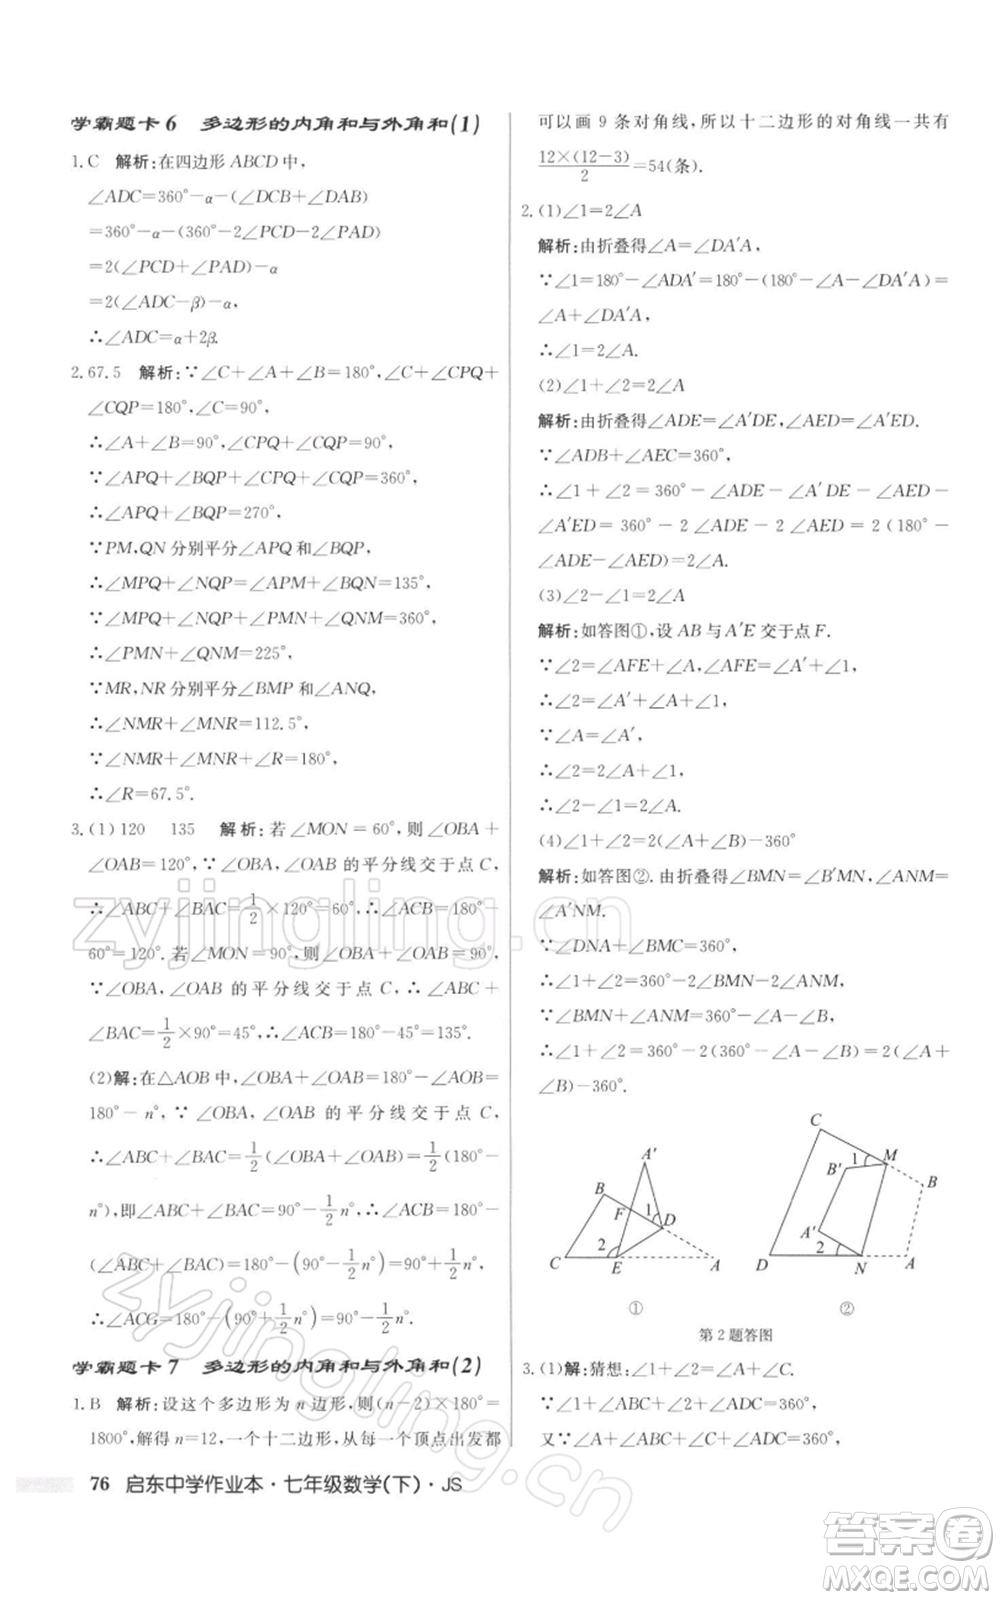 学霸题卡6 多边形的内角和与外角和(1)
1.C 解析:在四边形ABCD中,
∠ADC=360°-α-(∠DCB+∠DAB)
=360°-α-(360°-2∠PCD-2∠PAD)
=2(∠PCD+∠PAD)-α
=2(∠ADC-β)-α,
∴∠ADC=α+2β.
2.67.5 解析:∵∠C+∠A+∠B=180°,∠C+∠CPQ+
∠CQP=180°,∠C=90°,
∴∠A+∠B=90°,∠CPQ+∠CQP=90°,
∵∠APQ+∠BQP+∠CPQ+∠CQP=360°,
∴∠APQ+∠BQP=270°,
∵PM,QN分别平分∠APQ和∠BQP,
∴∠MPQ+∠NQP=∠APM+∠BQN=135°,
∵∠MPQ+∠NQP+∠PMN+∠QNM=360°,
∴∠PMN+∠QNM=225°,
∵MR,NR分别平分∠BMP和∠ANQ,
∴∠NMR+∠MNR=112.5°,
∵∠NMR+∠MNR+∠R=180°,
∴∠R=67.5°.
3.(1)120 135 解析:若∠MON=60°,则∠OBA+
∠OAB=120°,∵∠OBA,∠OAB的平分线交于点C,
∴∠ABC+∠BAC=1/2×120°=60°,∴∠ACB=180°-
60°=120°.若∠MON=90°,则∠OBA+∠OAB=90°,
∵∠OBA,∠OAB的平分线交于点C,∴∠ABC+
∠BAC=1/2×90°=45°,∴∠ACB=180°-45°=135°.
(2)解:在△AOB中,∠OBA+∠OAB=180°-∠AOB=
180°-n°,∵∠OBA,∠OAB的平分线交于点C,
∴∠ABC+∠BAC=1/2(∠OBA+∠OAB)=1/2(180°-
n°),即∠ABC+∠BAC=90°-1/2n°,∴∠ACB=180°-
(∠ABC+∠BAC)=180°-(90°-1/2n°)=90°+1/2n°,
∴∠ACG=180°-(90°+1/2n°)=90°-1/2n°.
学霸题卡7 多边形的内角和与外角和(2)
1.B 解析:设这个多边形为n边形,则(n-2)×180°=
1800°,解得n=12,一个十二边形,从每一个顶点出发都
可以画9条对角线,所以十二边形的对角线一共有
12×(12-3)/2=54(条).
2.(1)∠1=2∠A
解析:由折叠得∠A=∠DA′A,
∵∠1=180°-∠ADA′=180°-(180°-∠A-∠DA′A)=
∠A+∠DA′A,
∴∠1=2∠A.
(2)∠1+∠2=2∠A
解析:由折叠得∠ADE=∠A′DE,∠AED=∠A′ED.
∵∠ADB+∠AEC=360°,
∴∠1+∠2=360°-∠ADE-∠A′DE-∠AED-
∠A′ED=360°-2∠ADE-2∠AED=2(180°-
∠ADE-∠AED)=2∠A.
(3)∠2-∠1=2∠A
解析:如答图①,设AB与A′E交于点F.
∵∠2=∠AFE+∠A,∠AFE=∠A′+∠1,
∴∠2=∠A′+∠A+∠1,
∵∠A=∠A′,
∴∠2=2∠A+∠1,
∴∠2-∠1=2∠A.
(4)∠1+∠2=2(∠A+∠B)-360°
解析:如答图②.由折叠得∠BMN=∠B′MN,∠ANM=
∠A′NM.
∵∠DNA+∠BMC=360°,
∴∠1+∠2=360°-2∠BMN-2∠ANM,
∵∠BMN+∠ANM=360°-∠A-∠B,
∴∠1+∠2=360°-2(360°-∠A-∠B)=2(∠A+
∠B)-360°.
A′ B F 1 D 2 C E A
C B′ 1 M B A′ 2 D N A
① ②
第2题答图
3.(1)解:猜想:∠1+∠2=∠A+∠C.
∵∠1+∠ABC+∠2+∠ADC=360°,
又∵∠A+∠ABC+∠C+∠ADC=360°,
76 启东中学作业本·七年级数学(下)·JS
zyjingling.cn
zyjingling.cn
答案卷
MXQE.COM